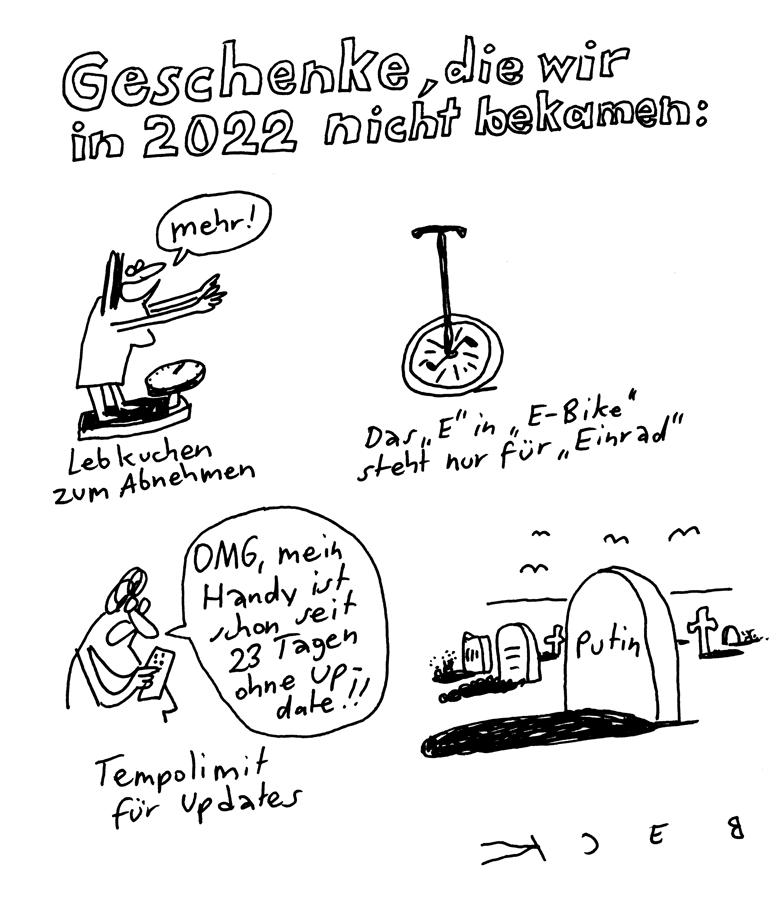 Geschenke, die wir
in 2022 nicht bekamen:
mehr!
Lebkuchen
zum Abnehmen
Das „E" in „E-Bike"
steht nur für „Einrad"
OMG, mein
Handy ist
schon seit
23 Tagen
ohne Up-
date!!
Tempolimit
für Updates
Putin
BECK